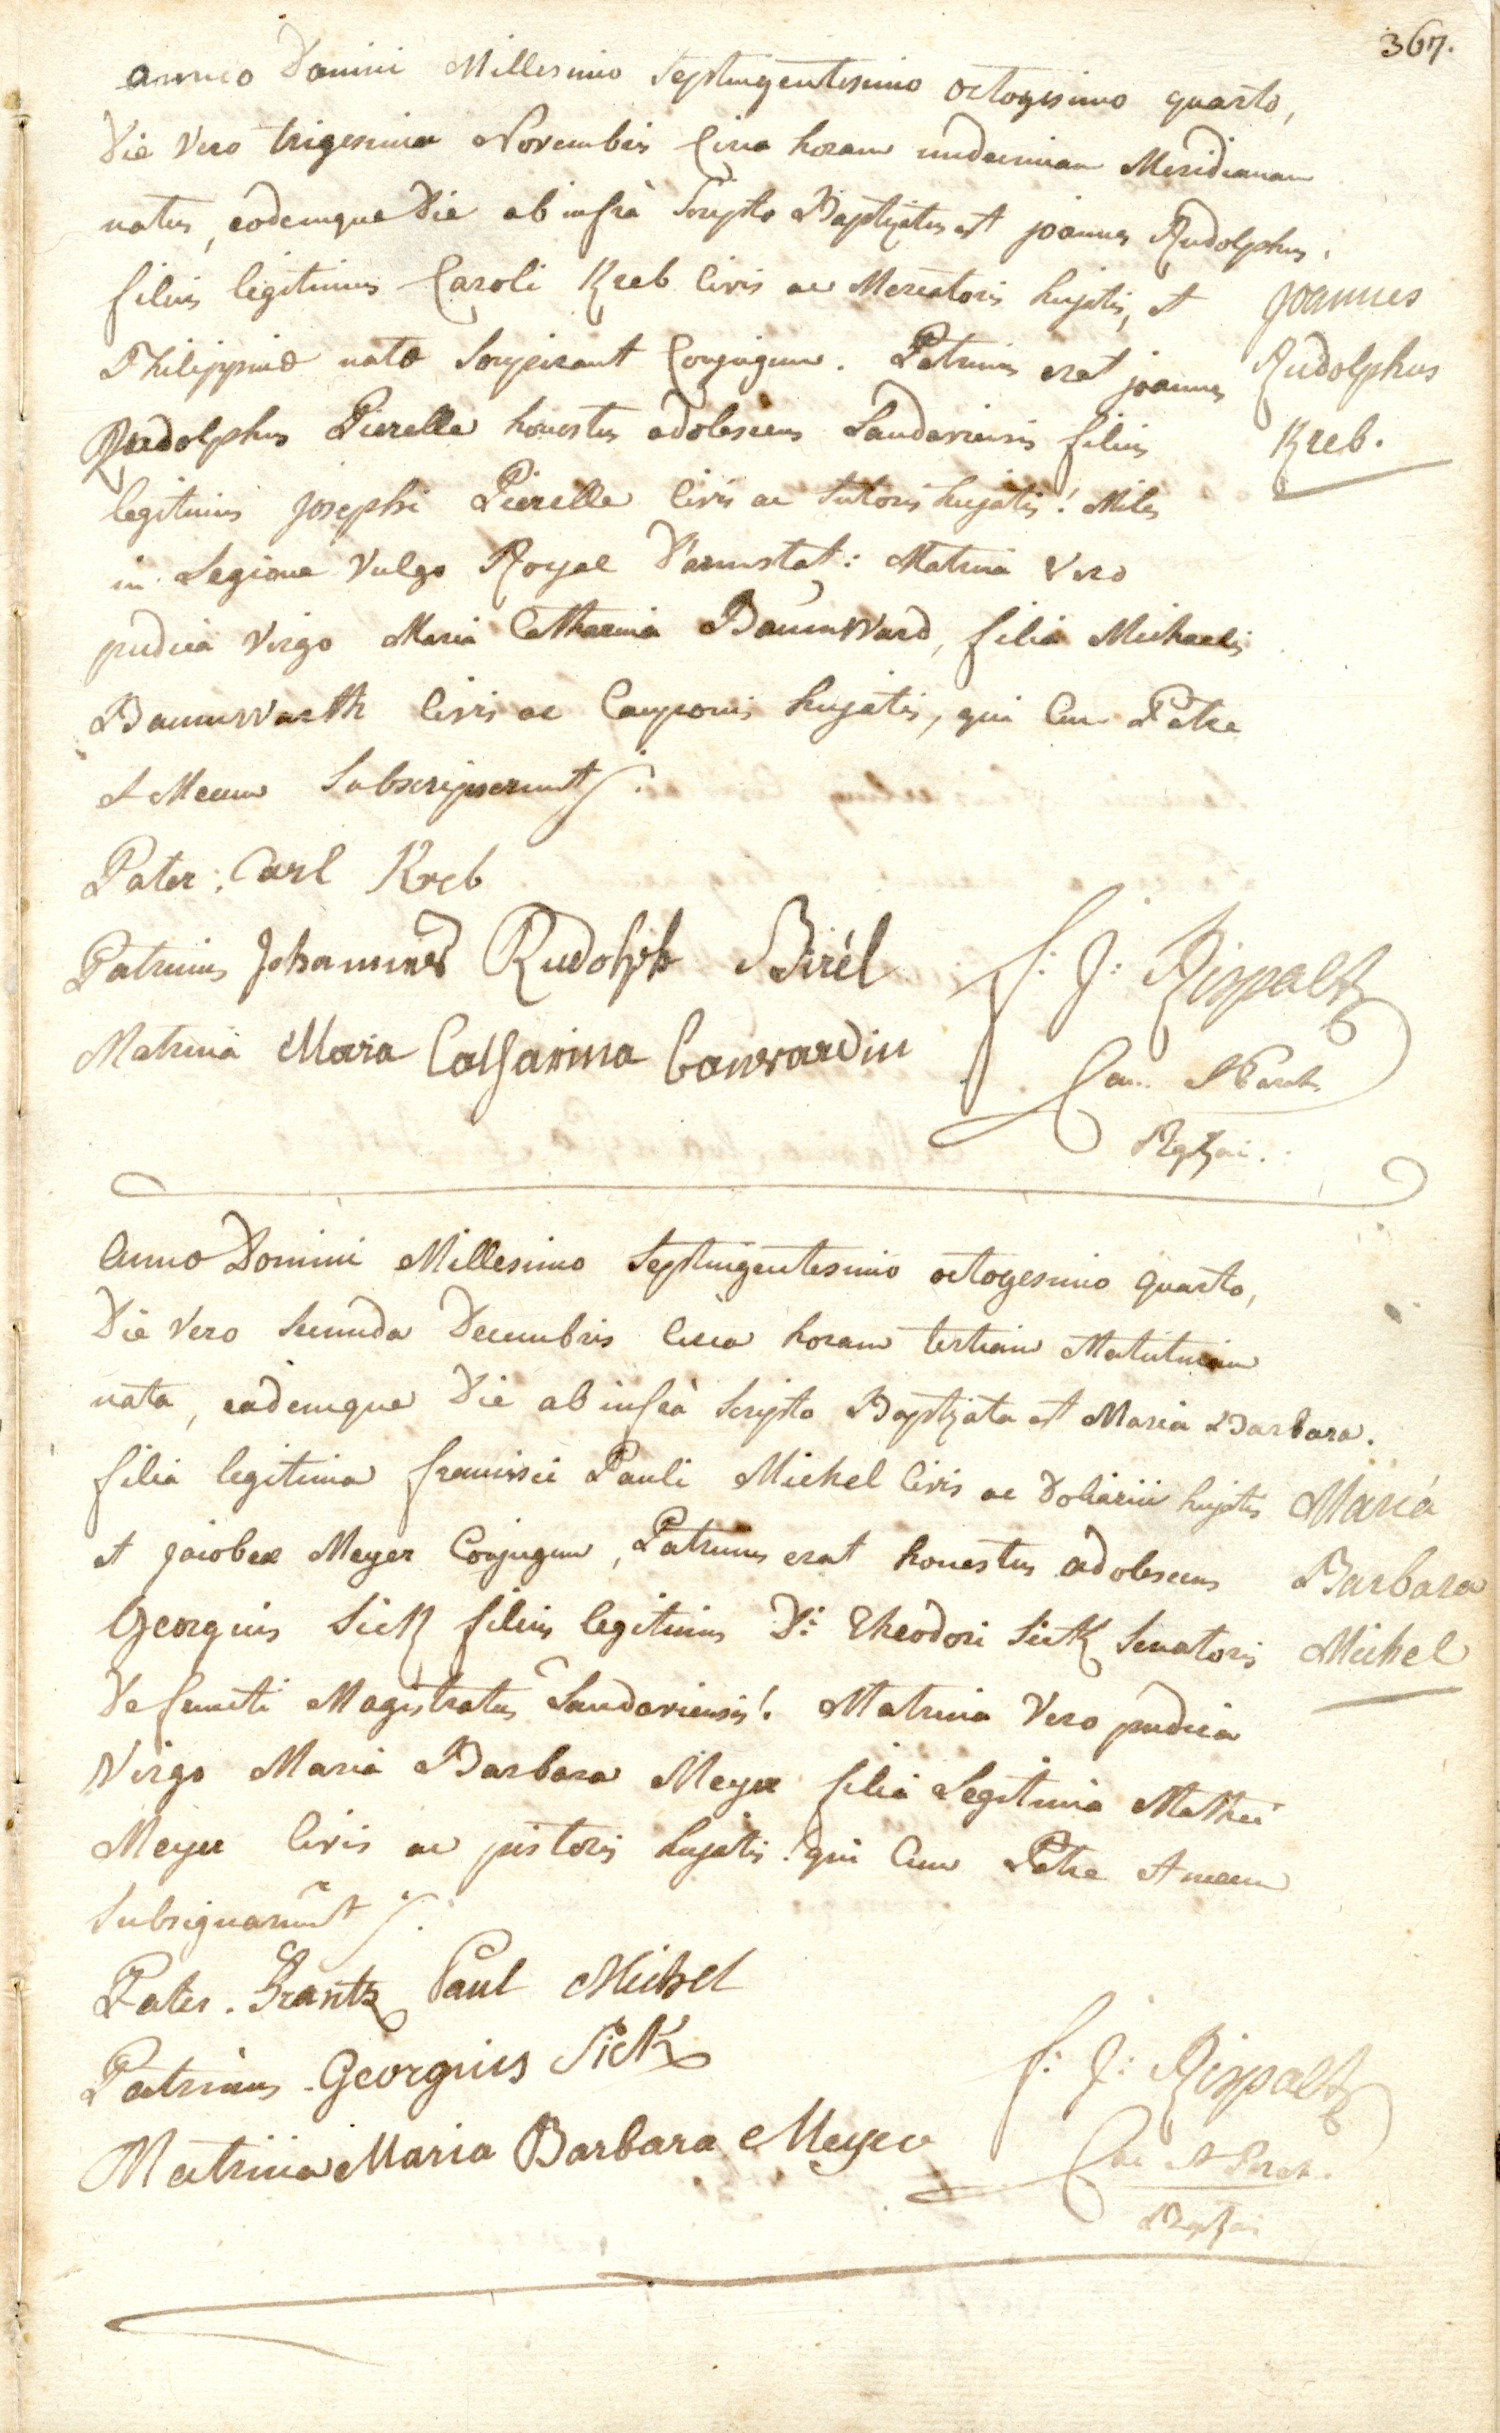 367.
anno Domini Millesimo Septingentesimo octogesimo quarto,
Die Vero trigesima Novembris Circa horam undecimam Meridianam
natus, eodemque Die ab infrà Scripto Baptizatus est joannes Rudolphus.
filius legitimus Caroli Kreb Civis ac Mercatoris hujatis, et
Philippinæ natæ Soupirant Conjugum. Patrinus erat joannes
Rudolphus Pierelle honestus adolescens Landaviensis filius
legitimus josephi Pierelle Civis ac Sutoris hujatis! Miles
in Legione Vulgo Royal Darmstat: Matrina Vero
pudica Virgo Maria Catharina BaumWard, filia Michaelis
BaumWarth Civis ac Cauponis hujatis, qui Cum Patre
et Mecum Subscripserunt.
Joannes
Rudolphus
Kreb.
Pater: Carl Kreb
Patrinus Johannes Rudolph Birêl
Matrina Maria Catharina
f: J: Rispalt
Baptzavi.
Anno Domini Millesimo Septingentesimo octogesimo quarto,
Die Vero Secunda Decembris Circa horam tertiam Matutinam
nata, eademque Die ab infrà Scripto Baptizata est Maria Barbara.
filia legitima francisci Pauli Michel Civis ac Doliarii hujatis
et jacobeæ Meyer Conjugum, Patrinus erat honestus adolescens
Georgius Sick filius legitimus D: Theodori Sick Senatoris
Defuncti Magistratus Landaviensis! Matrina Vero pudica
Virgo Maria Barbara Meyer filia Legitima Mathei
Meyer Civis ac pistoris hujatis! qui Cum Patre et mecum
Subsignarunt.
Maria
Barbara
Michel
Pater. Frantz Paul Michel
Patrinus. Georgius Sick
Matrina Maria Barbara Meyer
f: J: Rispalt